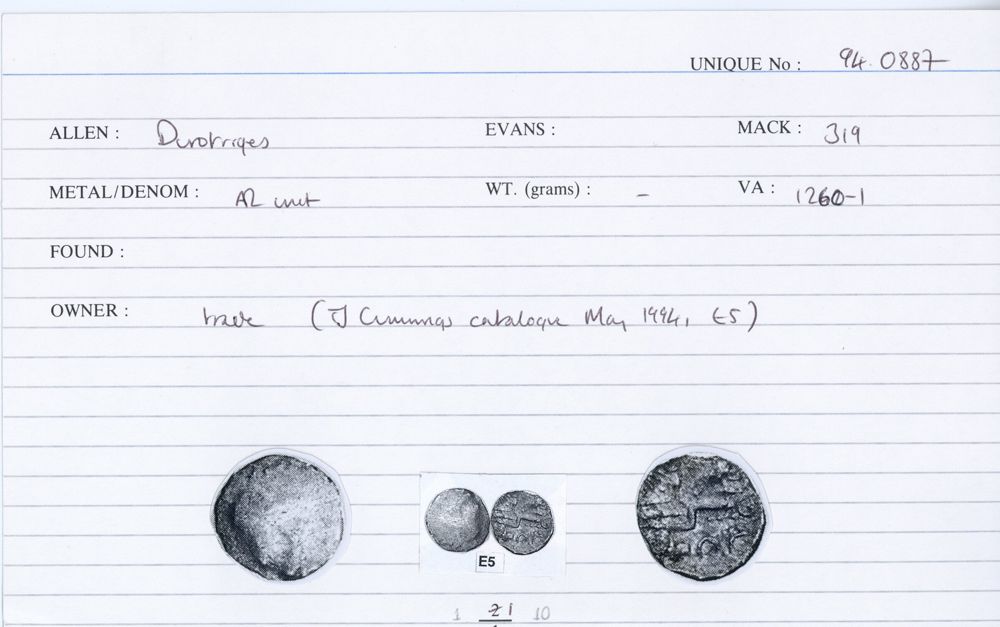 UNIQUE No : 94.0887
ALLEN : Durotriges EVANS : MACK : 319
METAL/DENOM : AR unit WT. (grams) : - VA : 1260-1
FOUND :
OWNER : trade (TJ Cummings catalogue May 1994, E5)
E5
1 21 10